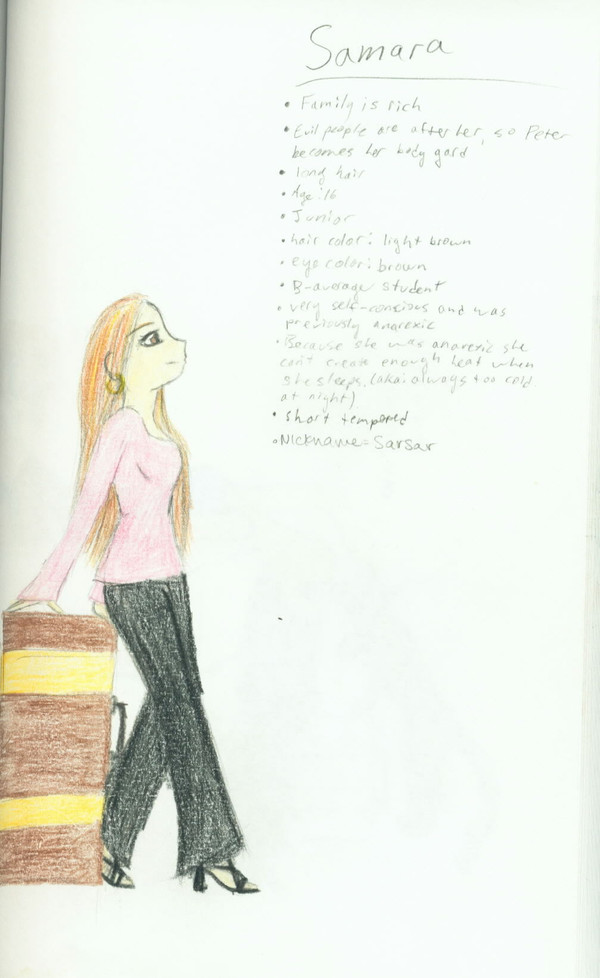 Samara
• Family is rich
• Evil people are after her, so Peter
becomes her body gard
• long hair
• Age: 16
• Junior
• hair color: light brown
• eye color: brown
• B-average student
• very self-conscious and was
previously anorexic
• Because she was anorexic she
can't create enough heat when
she sleeps. (aka: always too cold
at night)
• short tempered
• Nickname= Sarsar